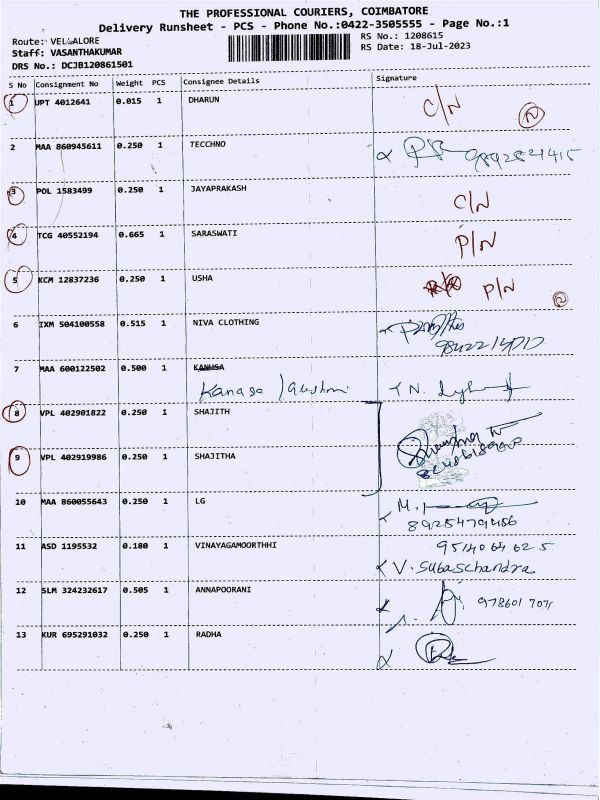 THE PROFESSIONAL COURIERS, COIMBATORE
Delivery Runsheet - PCS - Phone No.:0422-3505555 - Page No.:1
Route: VELLALORE
RS No.: 1208615
Staff: VASANTHAKUMAR
RS Date: 18-Jul-2023
DRS No.: DCJB120861501
S No Consignment No Weight PCS Consignee Details Signature
1 UPT 4012641 0.015 1 DHARUN C/N
2 MAA 860945611 0.250 1 TECCHNO 9892521415
3 POL 1583499 0.250 1 JAYAPRAKASH C/N
4 TCG 40552194 0.665 1 SARASWATI P/N
5 KCM 12837236 0.250 1 USHA P/N
6 IXM 504100558 0.515 1 NIVA CLOTHING
7 MAA 600122502 0.500 1 KANUSA
Kanasa N.
8 VPL 402901822 0.250 1 SHAJITH
9 VPL 402919986 0.250 1 SHAJITHA
10 MAA 860055643 0.250 1 LG M.
8925479456
11 ASD 1195532 0.180 1 VINAYAGAMOORTHHI 9514064625
V. Subaschandra
12 SLM 324232617 0.505 1 ANNAPOORANI
13 KUR 695291032 0.250 1 RADHA